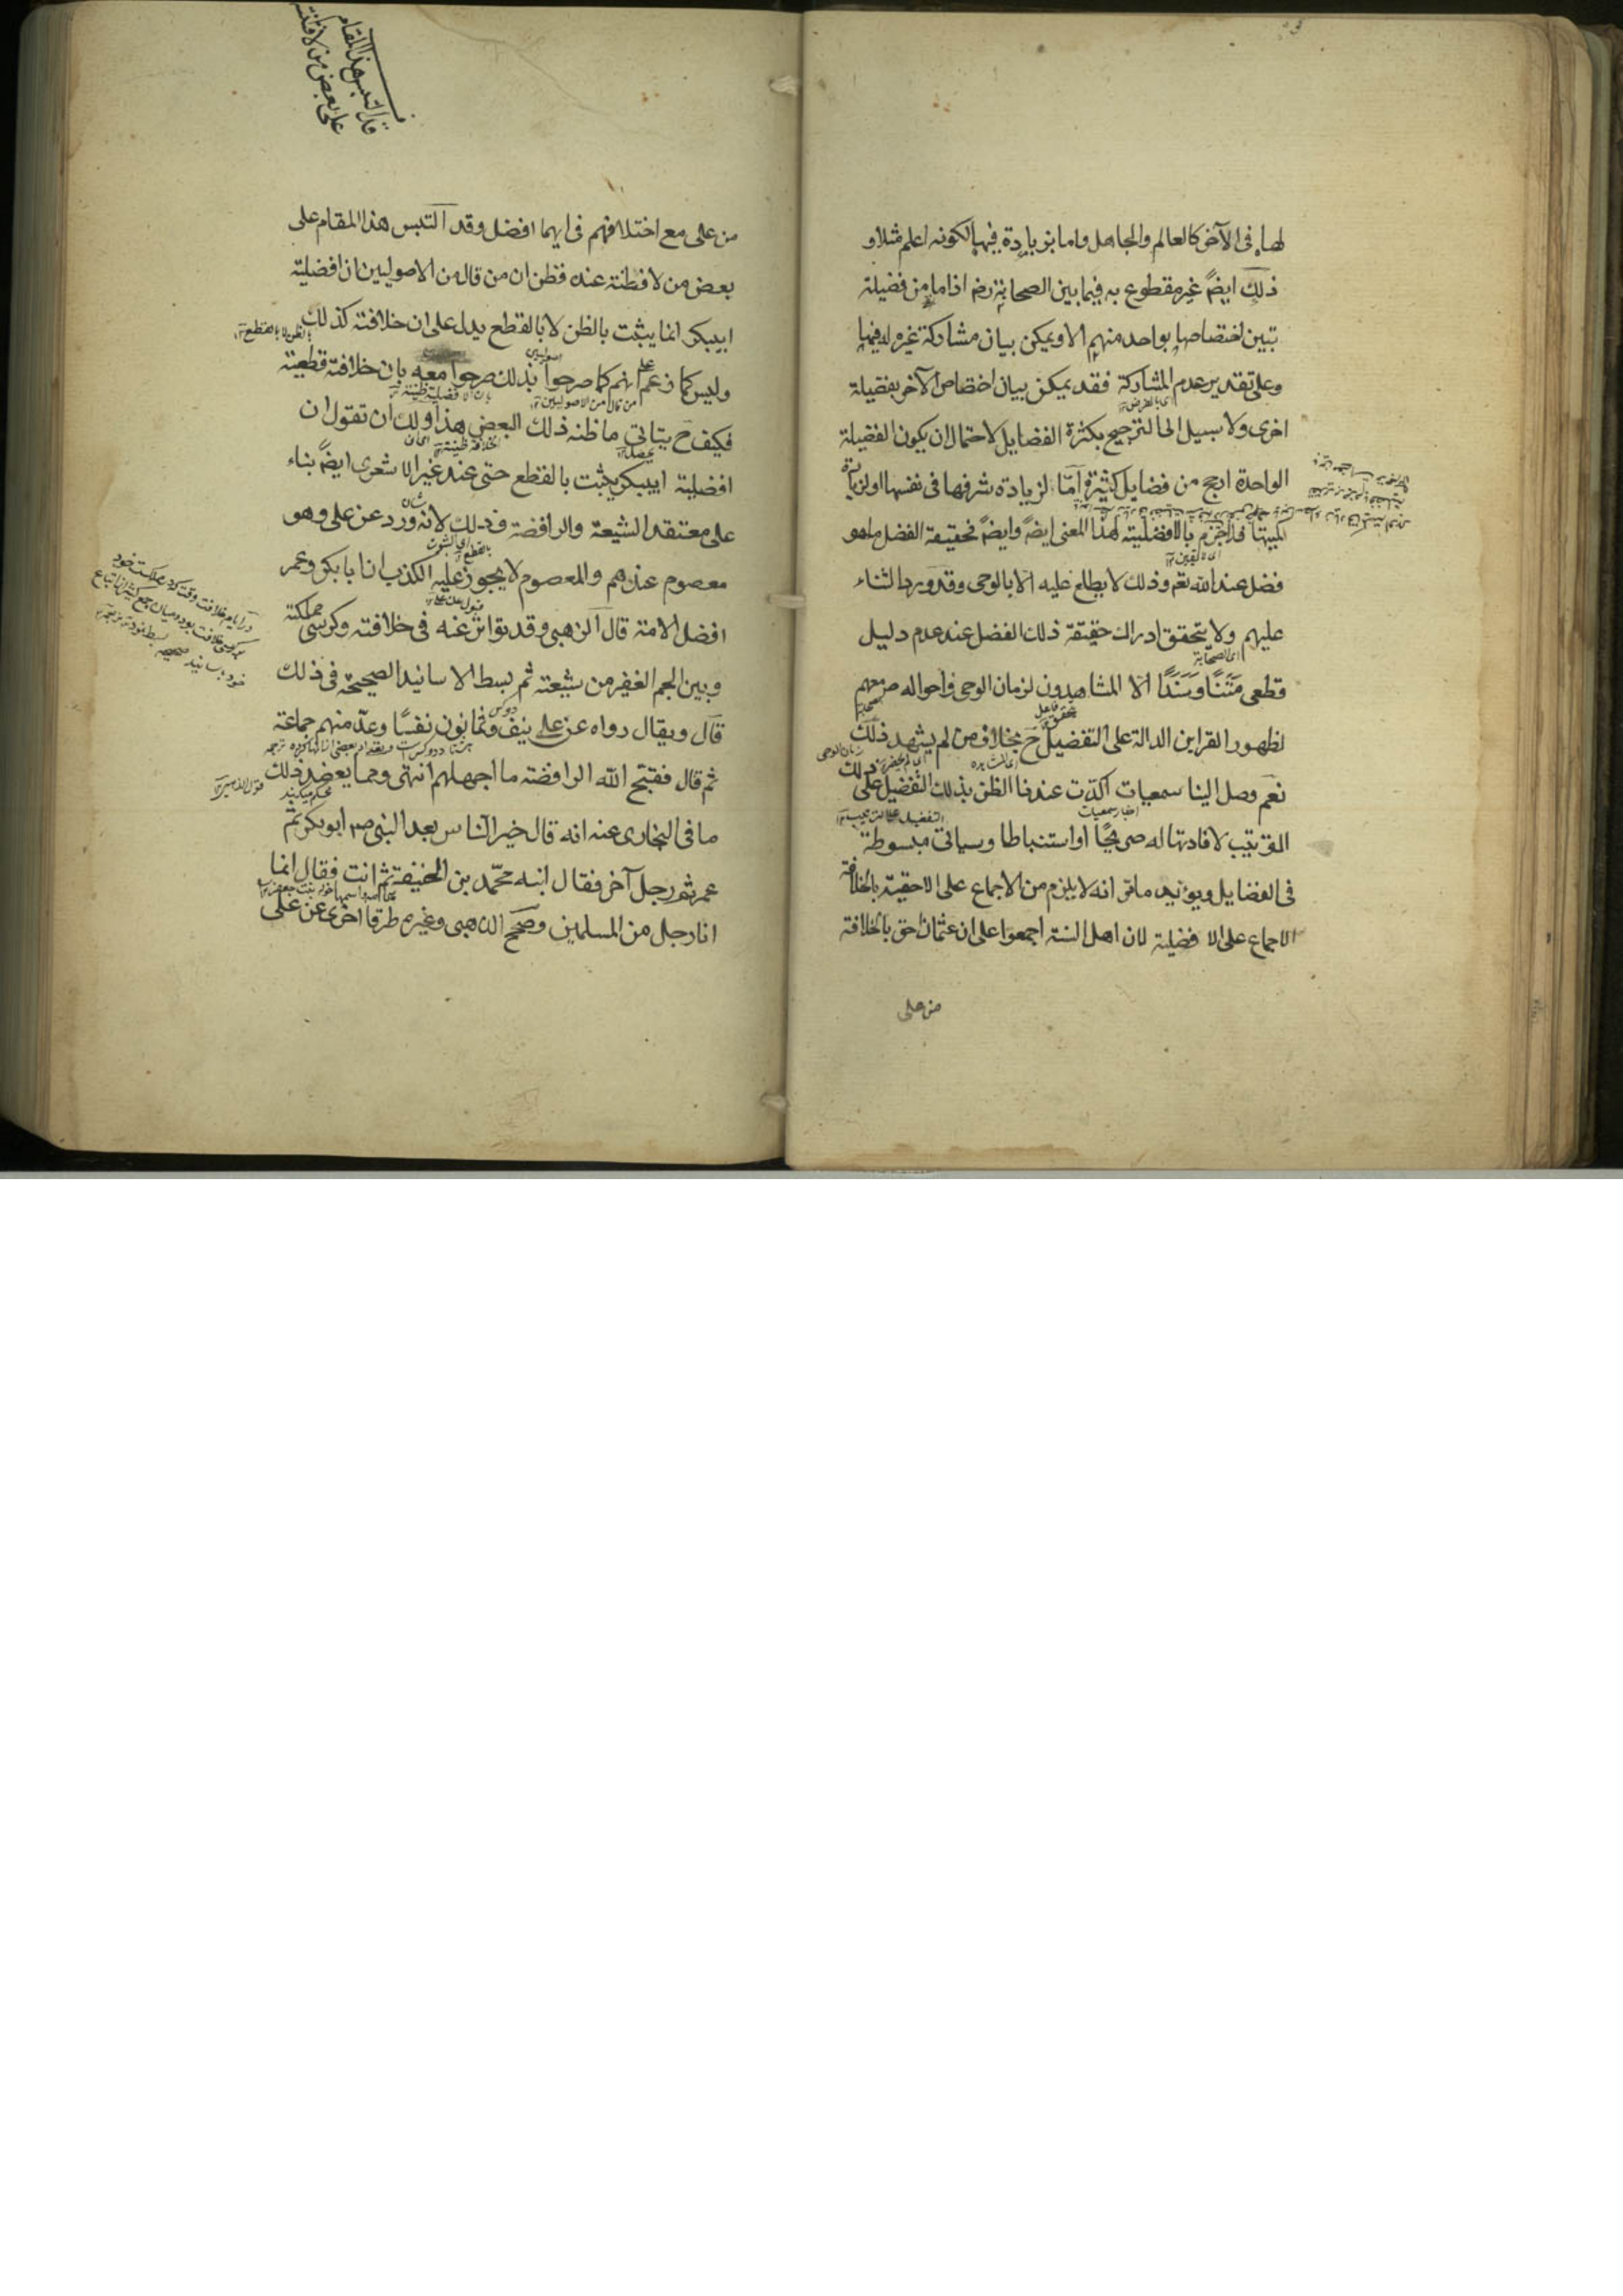 لها فى الآخر كالعالم والجاهل واما بزيادة فيها لكونه اعلم مثلا و
ذلك ايضً غير مقطوع به فيما بين الصحابة رضـ اذ ما من فضيلة
تبين اختصاصها بواحد منهم الا ويمكن بيان مشاركة غيره له فيها
وعلى تقدير عدم المشاركة فقد يمكن بيان اختصاص الآخر بفضيلة
اخرى ولا سبيل الى الترجيح بكثرة الفضايل لاحتمال ان يكون الفضيلة
الواحدة ارجح من فضايل كثيرة امّا لزيادة شرفها فى نفسها او لزيادة
كميتها فلا جزم بالافضلية لهذا المعنى ايضً وايضً فحقيقة الفضل ما هو
فضل عند الله تعم وذلك لا يطلع عليه الا بالوحى وقد ورد الثناء
عليهم ولا يتحقق ادراك حقيقة ذلك الفضل عند عدم دليل
اى الصحابة
قطعى مَتَنًا وَسَنَدًا الا المشاهدون لزمان الوحى واحواله صـ معهم
لظهور القراين الدالة على التفضيل ح بخلاف من لم يشهد ذلك
زمان الوحى
نعم وصل الينا سمعيات اكّدت عندنا الظن بذلك التفضيل على ذلك
اخبار سمعيات
الترتيب لافادتها له صريحًا او استنباطا وسياتى مبسوطة
فى الفضايل ويؤيد ما مر انه لا يلزم من الاجماع على الاحقية بالخلافة
الاجماع على الا فضلية لان اهل السنة اجمعوا على ان عثمان احق بالخلافة
من على
قد التبس هذا المقام
على بعض من لا فطنة
من على مع اختلافهم فى ايهما افضل وقد التبس هذا المقام على
بعض من لا فطنة عنده فظن ان من قال من الاصوليين ان افضلية
ابيبكر انما يثبت بالظن لا بالقطع يدل على ان خلافته كذلك
بالظن لا بالقطع
وليس كما زعم انهم كما صرحوا بذلك صرحوا معه بان خلافته قطعية
اصوليين
من قال من الاصوليين
بان الافضلية ظنية
فكيف ح يتاتى ما ظنه ذلك البعض هذا ولك ان تقول ان
افضلية ابيبكر يثبت بالقطع حتى عند غير الاشعرى ايضً بناء
على معتقد الشيعة والرافضة وذلك لانه ورد عن على وهو
معصوم عندهم والمعصوم لا يجوز عليه الكذب ان ابا بكر وعمر
افضل الامة قال الذهبى وقد تواتر عنه فى خلافته وكرسى مملكته
وبين الجم الغفير من شيعته ثم بسط الاسانيد الصحيحة فى ذلك
قال ويقال رواه عن على نيف وثمانون نفسًا وعدّ منهم جماعة
ثم قال فقبّح الله الرافضة ما اجهلهم انتهى ومما يعضد ذلك
ما فى البخارى عنه انه قال خير الناس بعد النبى صم ابو بكر ثم
عمر ثم رجل آخر فقال ابنه محمّد بن الحنفية ثم انت فقال انما
انا رجل من المسلمين وصحّح الذهبى وغيره طرقا اخرى عن على